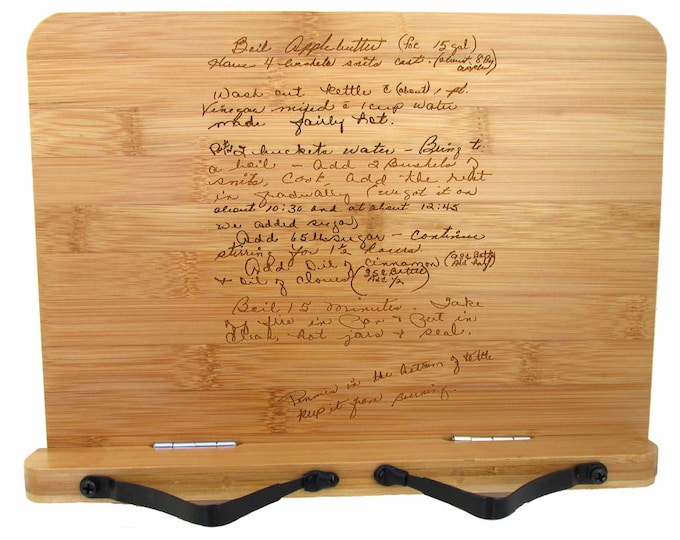 Boil Applebutter (for 15 gal)
Have 4 bushels snits cut. (about 8 Bu apples)
Wash out kettle & (about) 1 pt.
Vinegar mixed & 1 cup water
made fairly hot.
Put 2 buckets water – Bring to
a boil – Add 2 Bushels of
snits, Cook, add the rest
in gradually (we got it on
about 10:30 and at about 12:45
we added sugar)
Add 65 lb sugar – continue
stirring for 1½ hours
Add Oil of Cinnamon (
& Oil of Cloves (25¢ Bottle
Boil 15 minutes. Take
fire in Pan & Put in
Clean, hot jars & seal.
Pennies in the bottom of kettle
keep it from burning.